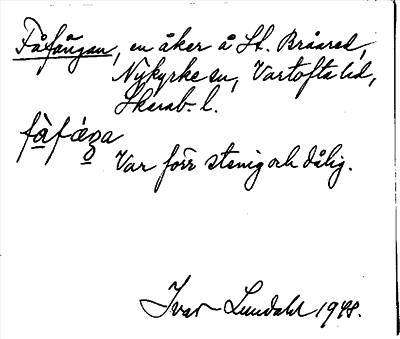 Fåfängan, en åker å St. Bråared,
Nykyrke sn, Vartofta hd,
Skarab. l.
fàfáŋa
Var förr stenig och dålig.
Ivar Lundahl 1948.